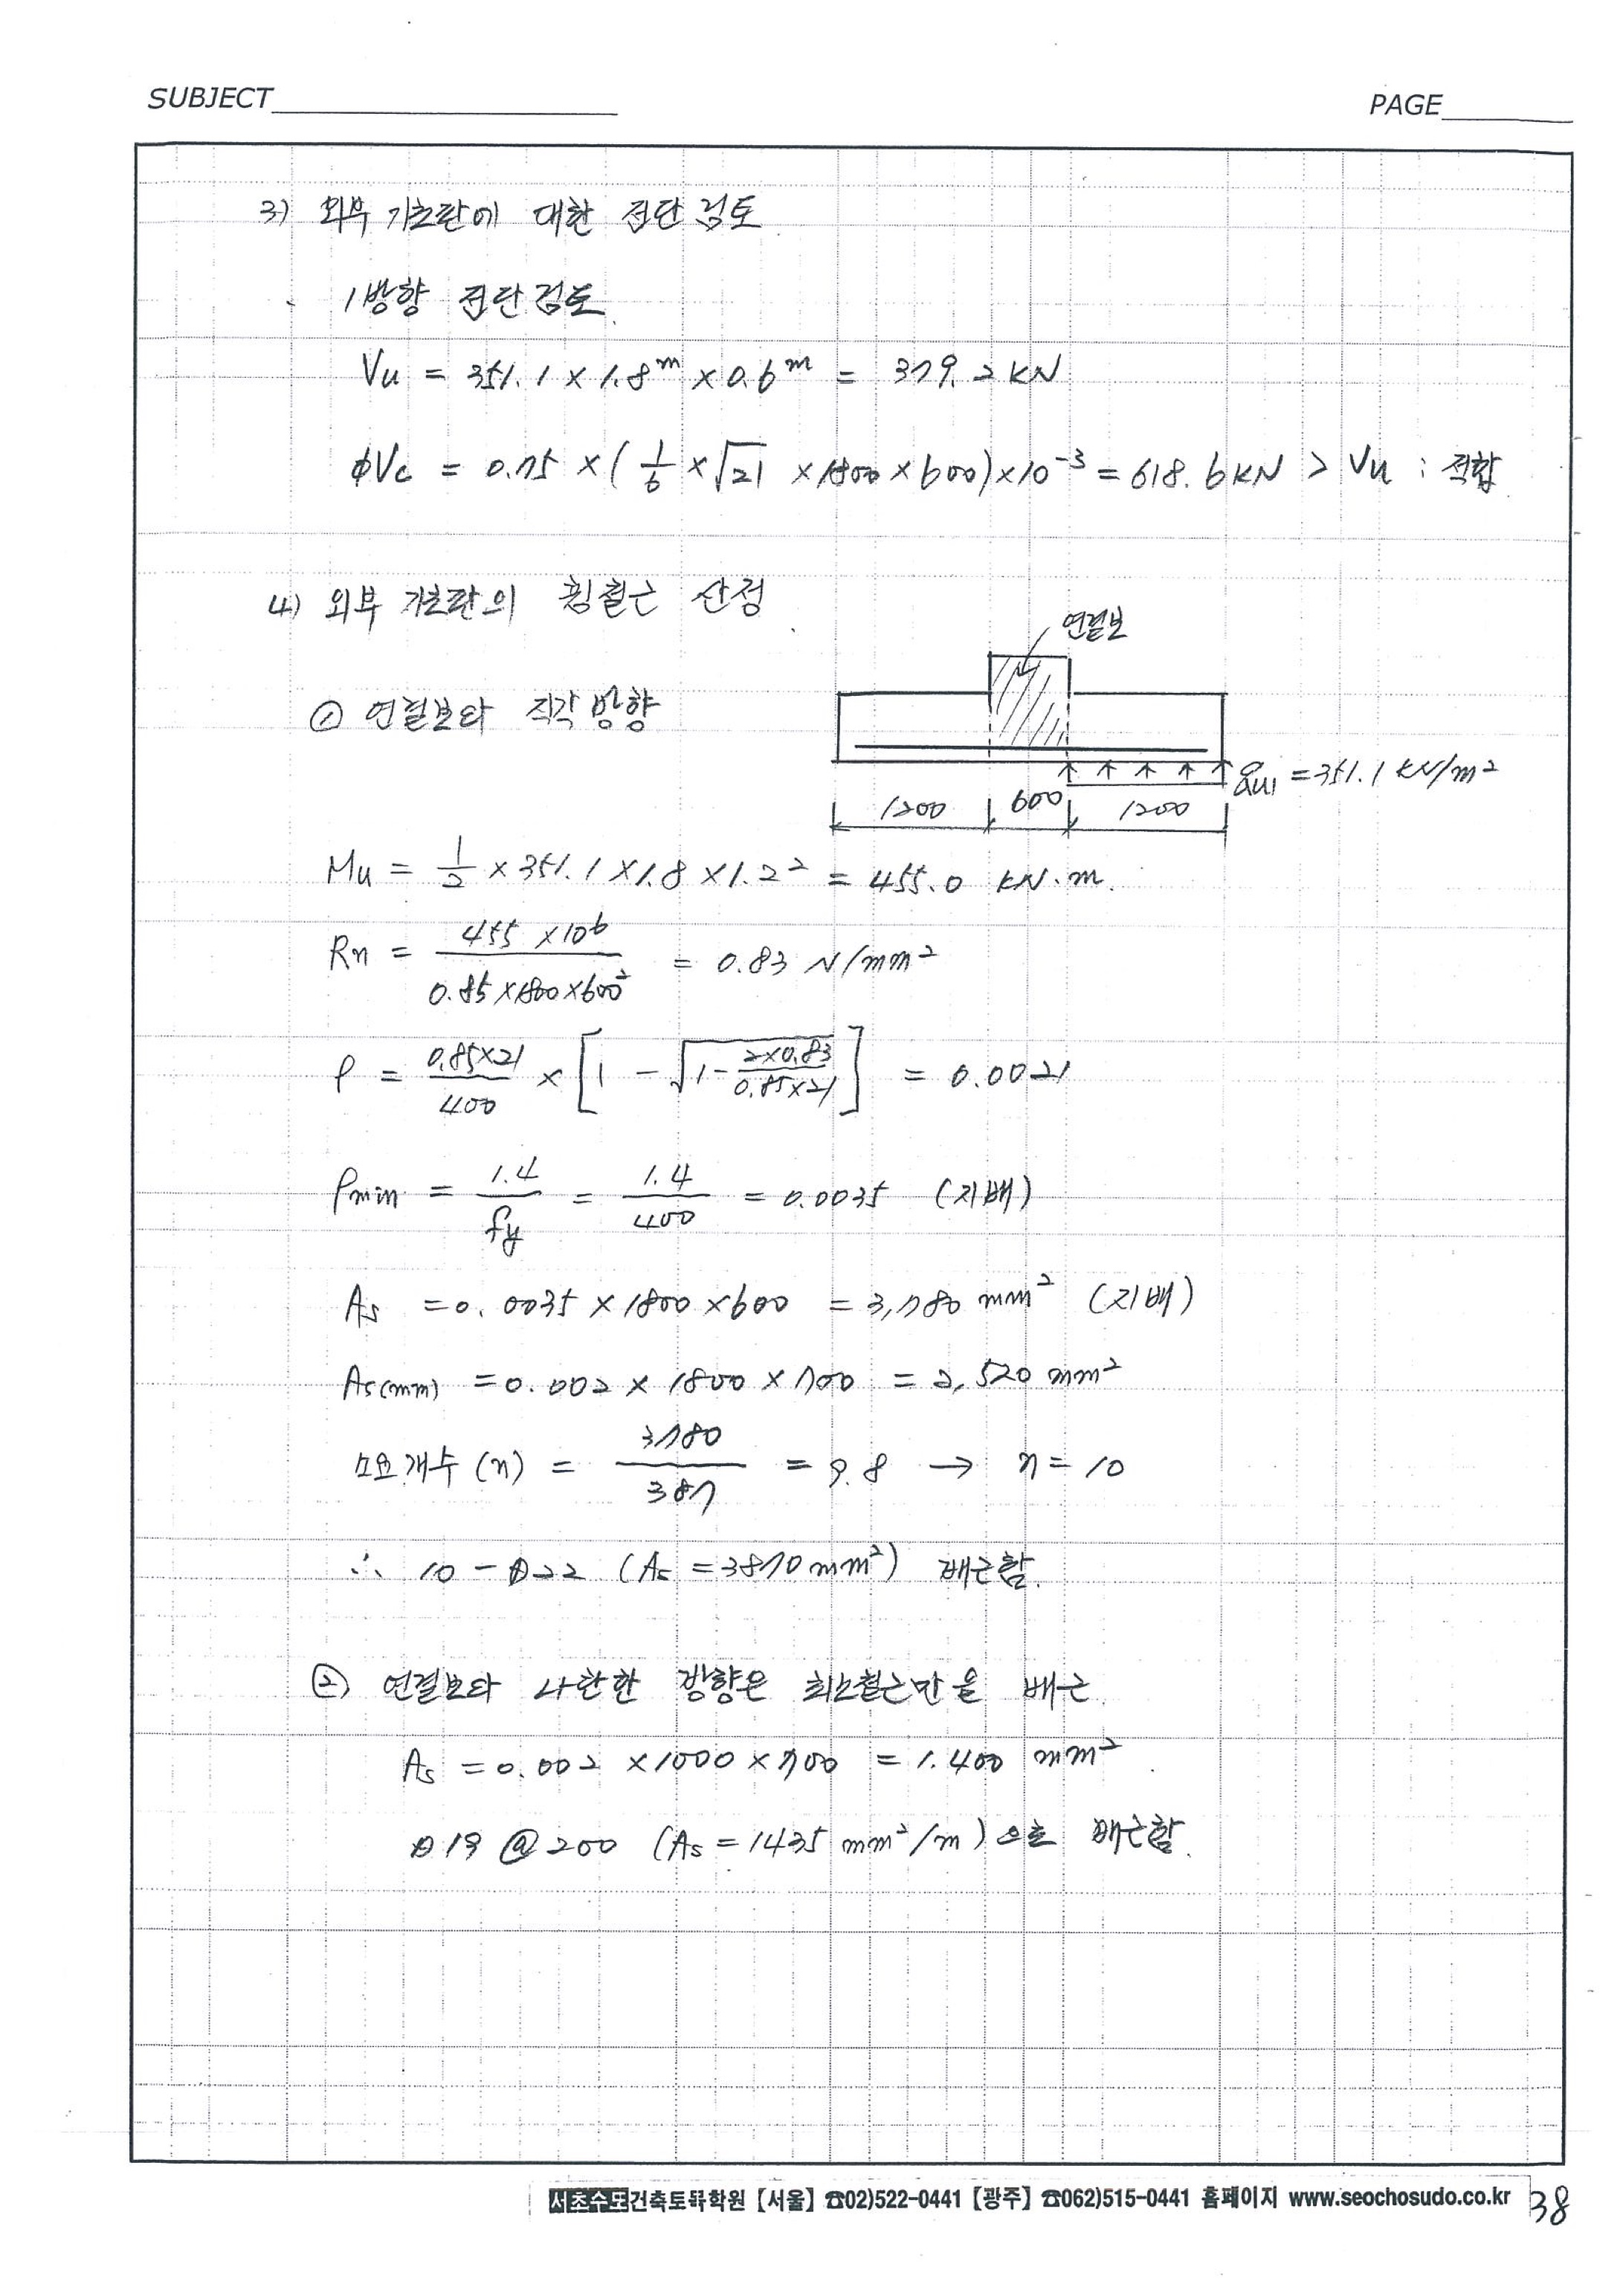 SUBJECT
PAGE
3) 외부 기초판에 대한 전단검토
1방향 전단검토.
Vu = 351.1 × 1.8ᵐ × 0.6ᵐ = 379.2 kN
φVc = 0.75 × (1/6 × √21 × 1800 × 600) × 10⁻³ = 618.6 kN > Vu ; 적합
4) 외부 기초판의 휨철근 산정
연결보
① 연결보와 직각방향
qu1 = 351.1 kN/m²
1200 600 1200
Mu = 1/2 × 351.1 × 1.8 × 1.2² = 455.0 kN·m.
Rn = 455 × 10⁶ / 0.85 × 1800 × 600² = 0.83 N/mm²
ρ = 0.85×21 / 400 × [1 - √(1 - 2×0.83 / 0.85×21)] = 0.0021
ρmin = 1.4 / fy = 1.4 / 400 = 0.0035 (지배)
As = 0.0035 × 1800 × 600 = 3,780 mm² (지배)
As(min) = 0.002 × 1800 × 700 = 2,520 mm²
소요개수 (n) = 3780 / 387 = 9.8 → n = 10
∴ 10 - D22 (As = 3870 mm²) 배근함.
② 연결보와 나란한 방향은 최소철근만을 배근.
As = 0.002 × 1000 × 700 = 1.400 mm²
D19 @ 200 (As = 1435 mm²/m) 으로 배근함.
서초수도건축토목학원 【서울】 ☎02)522-0441 【광주】 ☎062)515-0441 홈페이지 www.seochosudo.co.kr
38